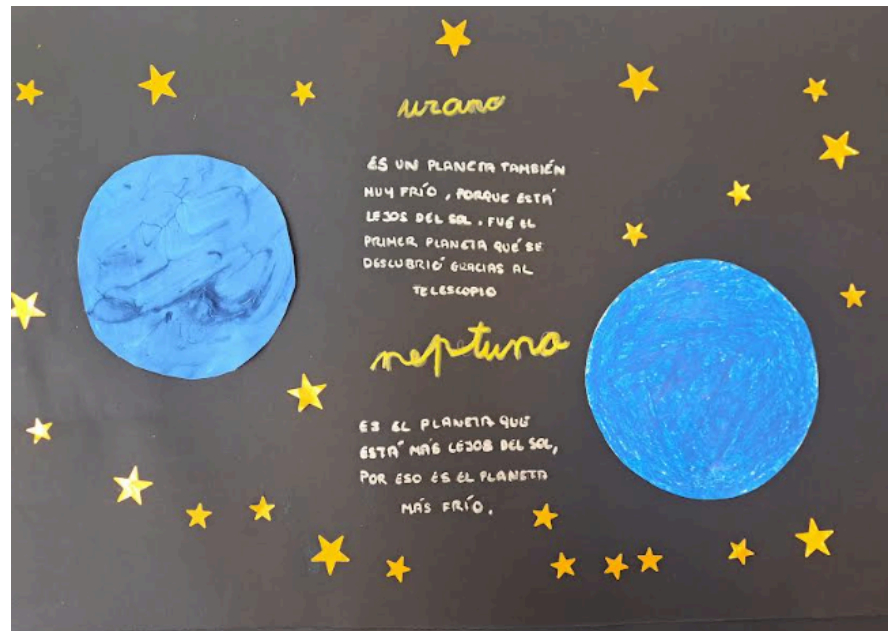 urano
ES UN PLANETA TAMBIÉN
MUY FRÍO, PORQUE ESTÁ
LEJOS DEL SOL. FUÉ EL
PRIMER PLANETA QUÉ SE
DESCUBRIÓ GRACIAS AL
TELESCOPIO
neptuno
ES EL PLANETA QUE
ESTÁ MÁS LEJOS DEL SOL,
POR ESO ES EL PLANETA
MÁS FRÍO.